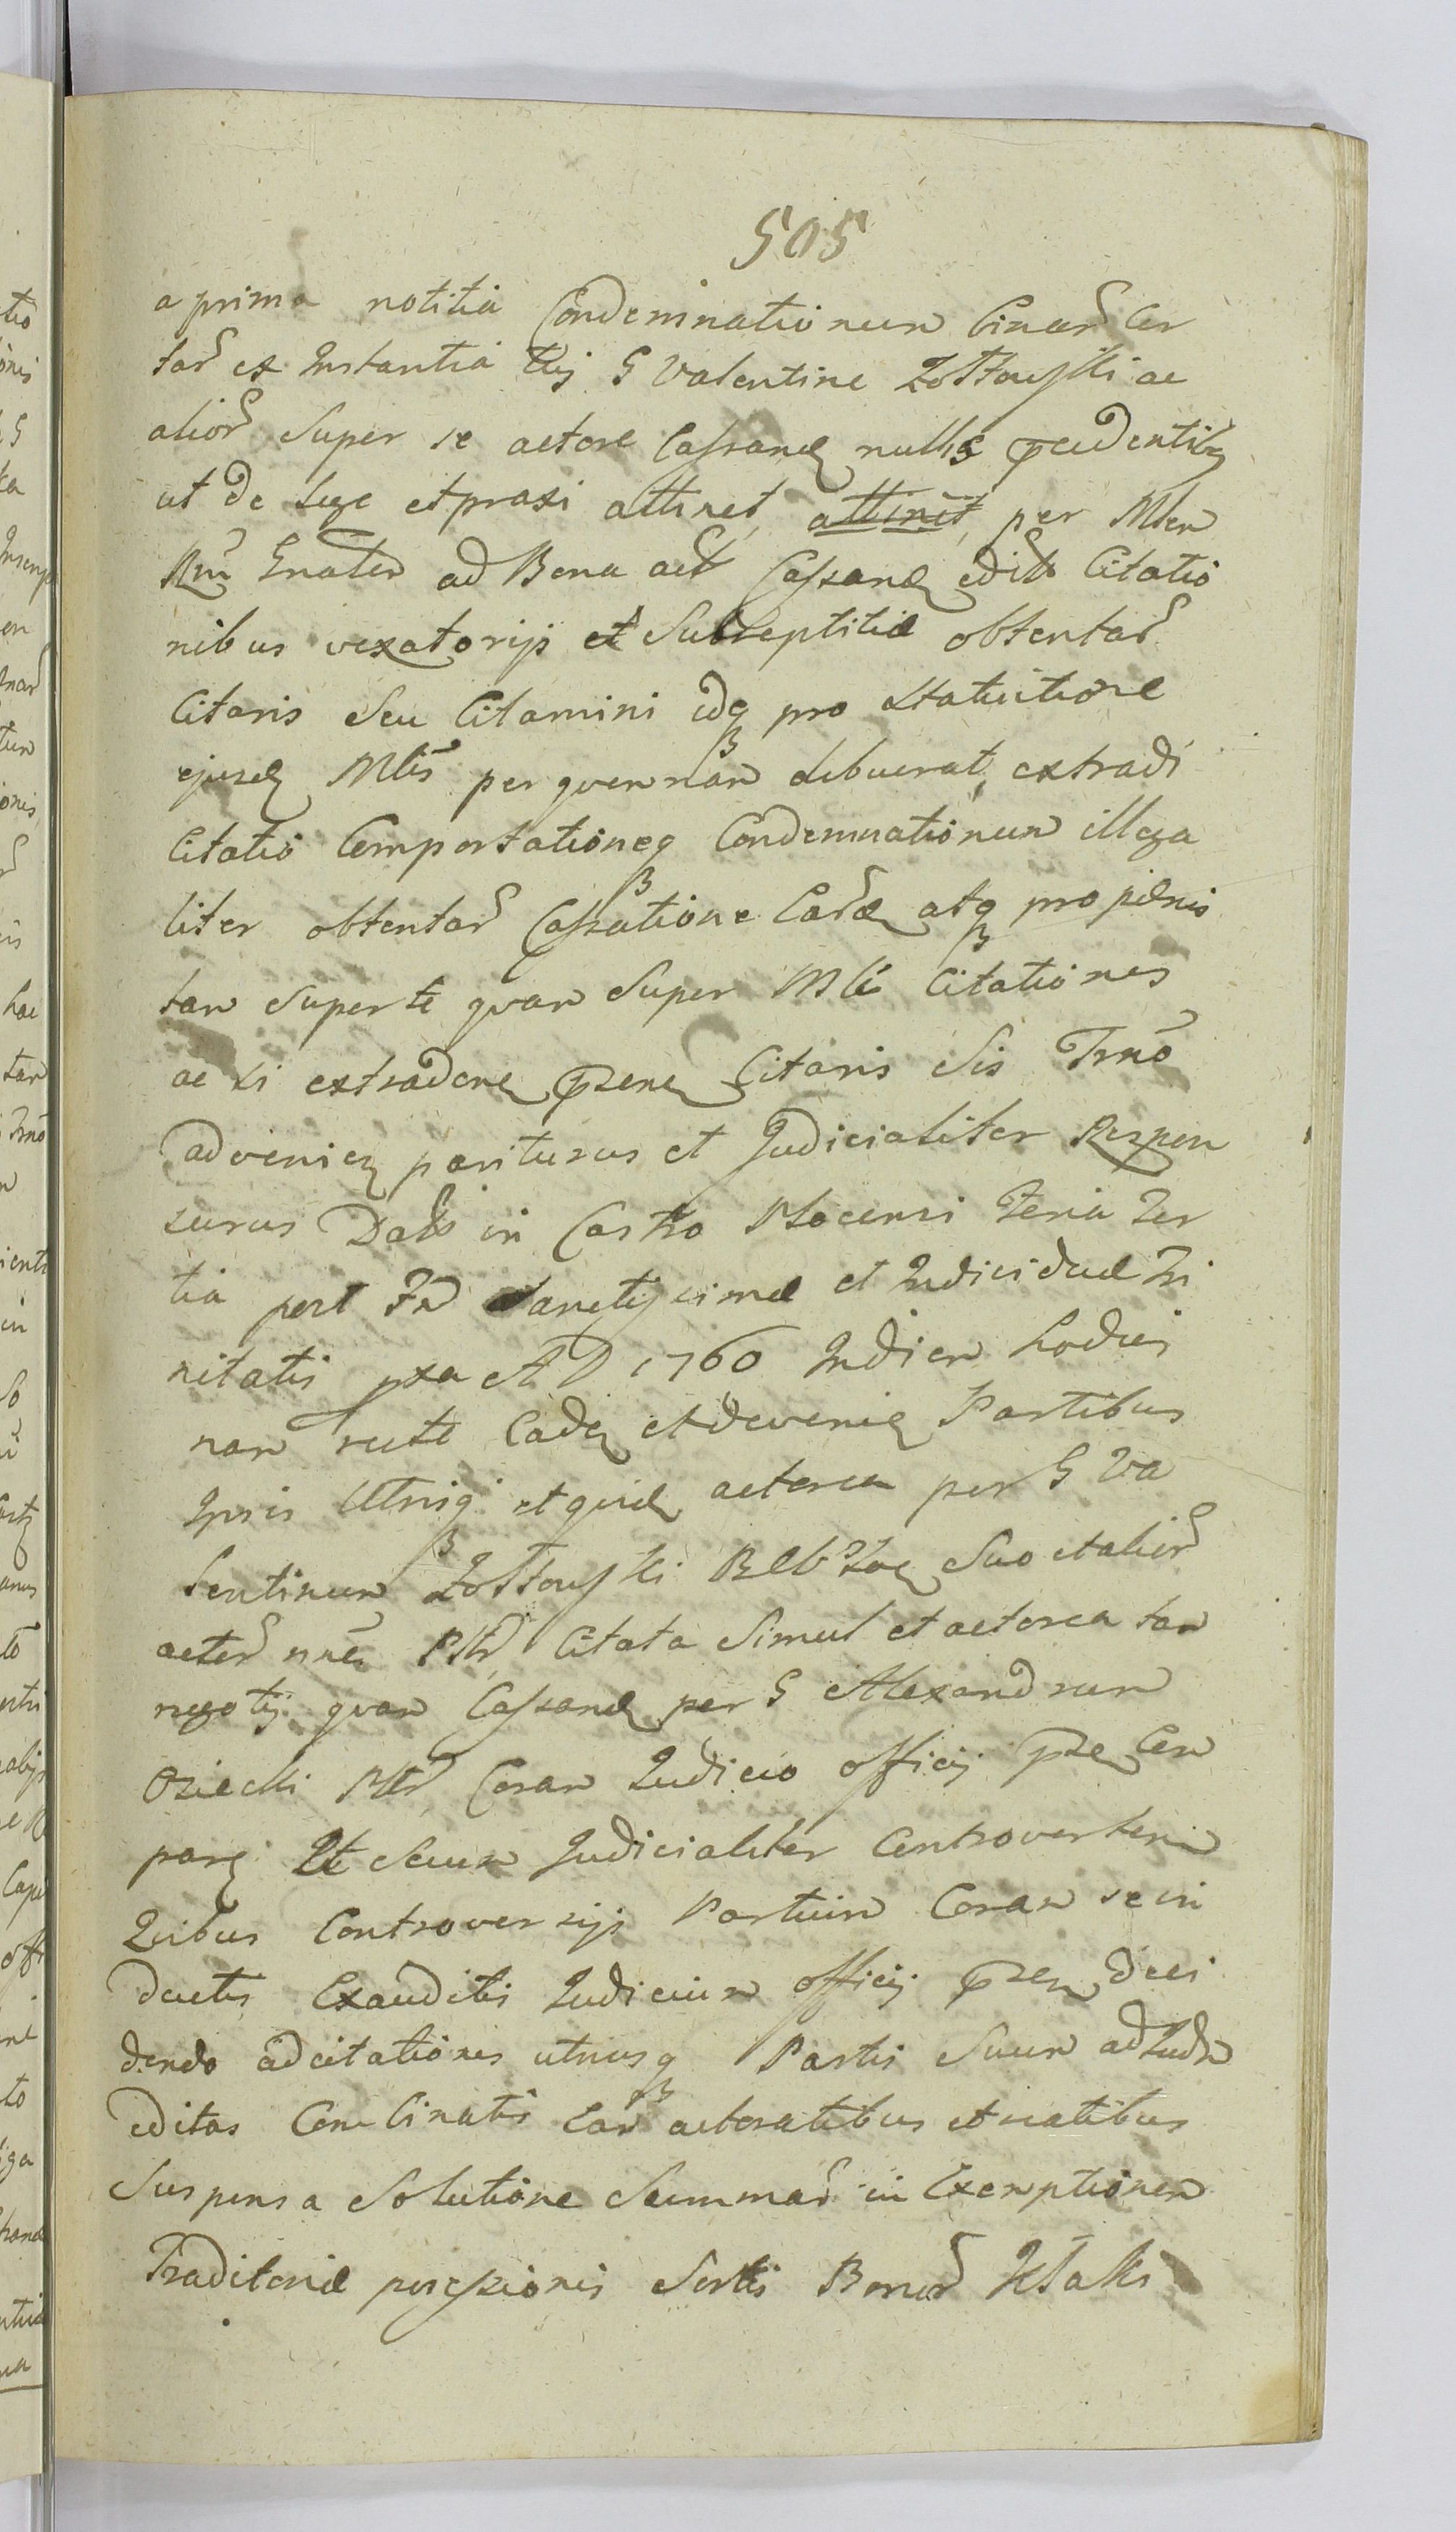 505
a prima notitia Condemnationum
ex Instantia Tuj G Valentine Zołtowski ac
alior Super se actore Cassand nullis
ut de lege et praxi attinet, attinet, per Mlen
ad Bona act Cassand edit Citatio
nibus vexatorijs et Subreptitiæ obtentar
Citaris Seu Citamini idq pro Statuitione
ejusd Mlis per quem nam debuerat extradi
Citatio Comportationeq Condemnationum illega
liter obtentar Cassatione atq pro pænis
tam Super te quam Super Mli Citationes
ac si extradere Citaris Sis Trno
advenien pariturus et Judicialiter Respon
surus Dat in Castro Plocensi Feria Ter
tia post Sanctissimæ et Individuæ Tri
nitatis A D 1760 Indiem hodier
nam recte Caden et devenien Partibus
Ipsis Utrisq et quid actorea per G Va
lentinum Zołtowski Suo et alior
actor Citata Simul et actorea tam
negotij quam Cassand per G Alexandrum
Osiecki Coram Judicio Officij Com
paren Judicialiter Controverten
Quibus Controversijs Partium Coram se in
ductis Exauditis Judicium Officij deci
dendo ad citationes utriusq Partis Suum ad
editas Combinatis actoratibus et reatibus
Suspensa Solutione Summar in Exemptionem
Traditoriæ possessionis Sortis Bonor